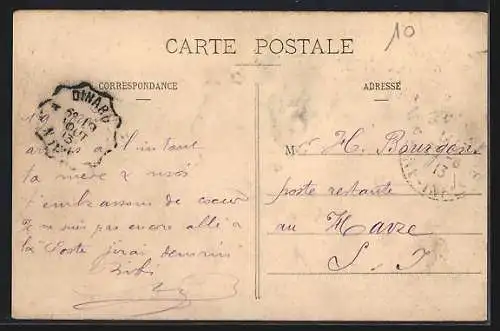 10
CARTE POSTALE
CORRESPONDANCE
ADRESSE
DINARD
à l'instant
ta mère & moi
t'embrassons de coeur
Je ne suis pas encore allé à
la Poste j'irai demain
Bibi
M. H. Bourdon
poste restante
au Havre
S. I